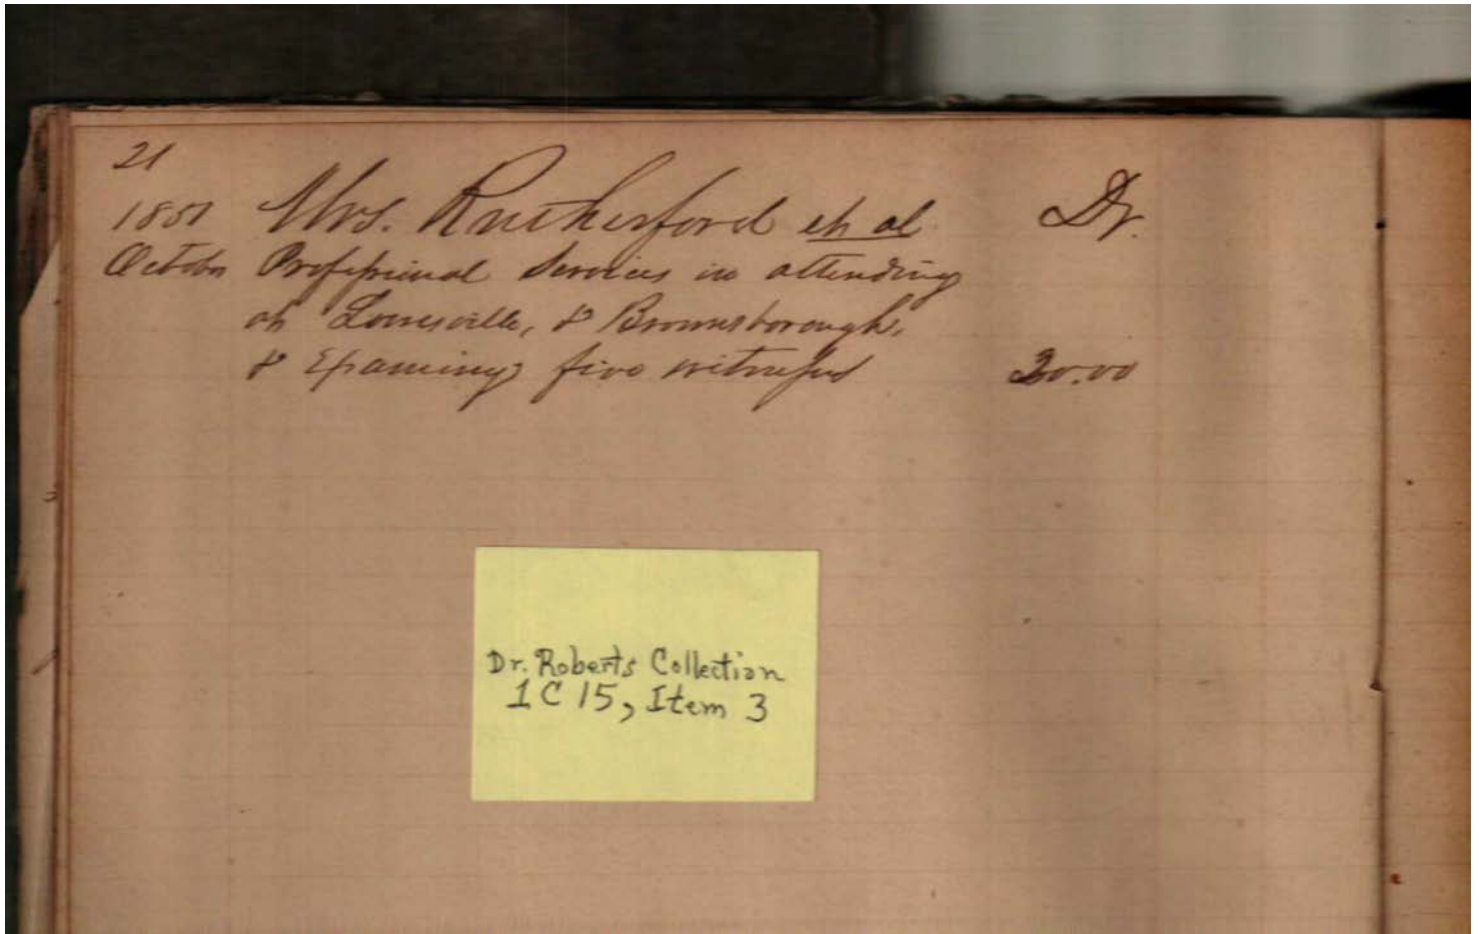 21
1851 Mrs. Rutherford et al Dr.
October Professional Services in attending
at Louisville, & Brownsborough,
& Examining five witnesses 20.00
Dr. Roberts Collection
1 C 15, Item 3